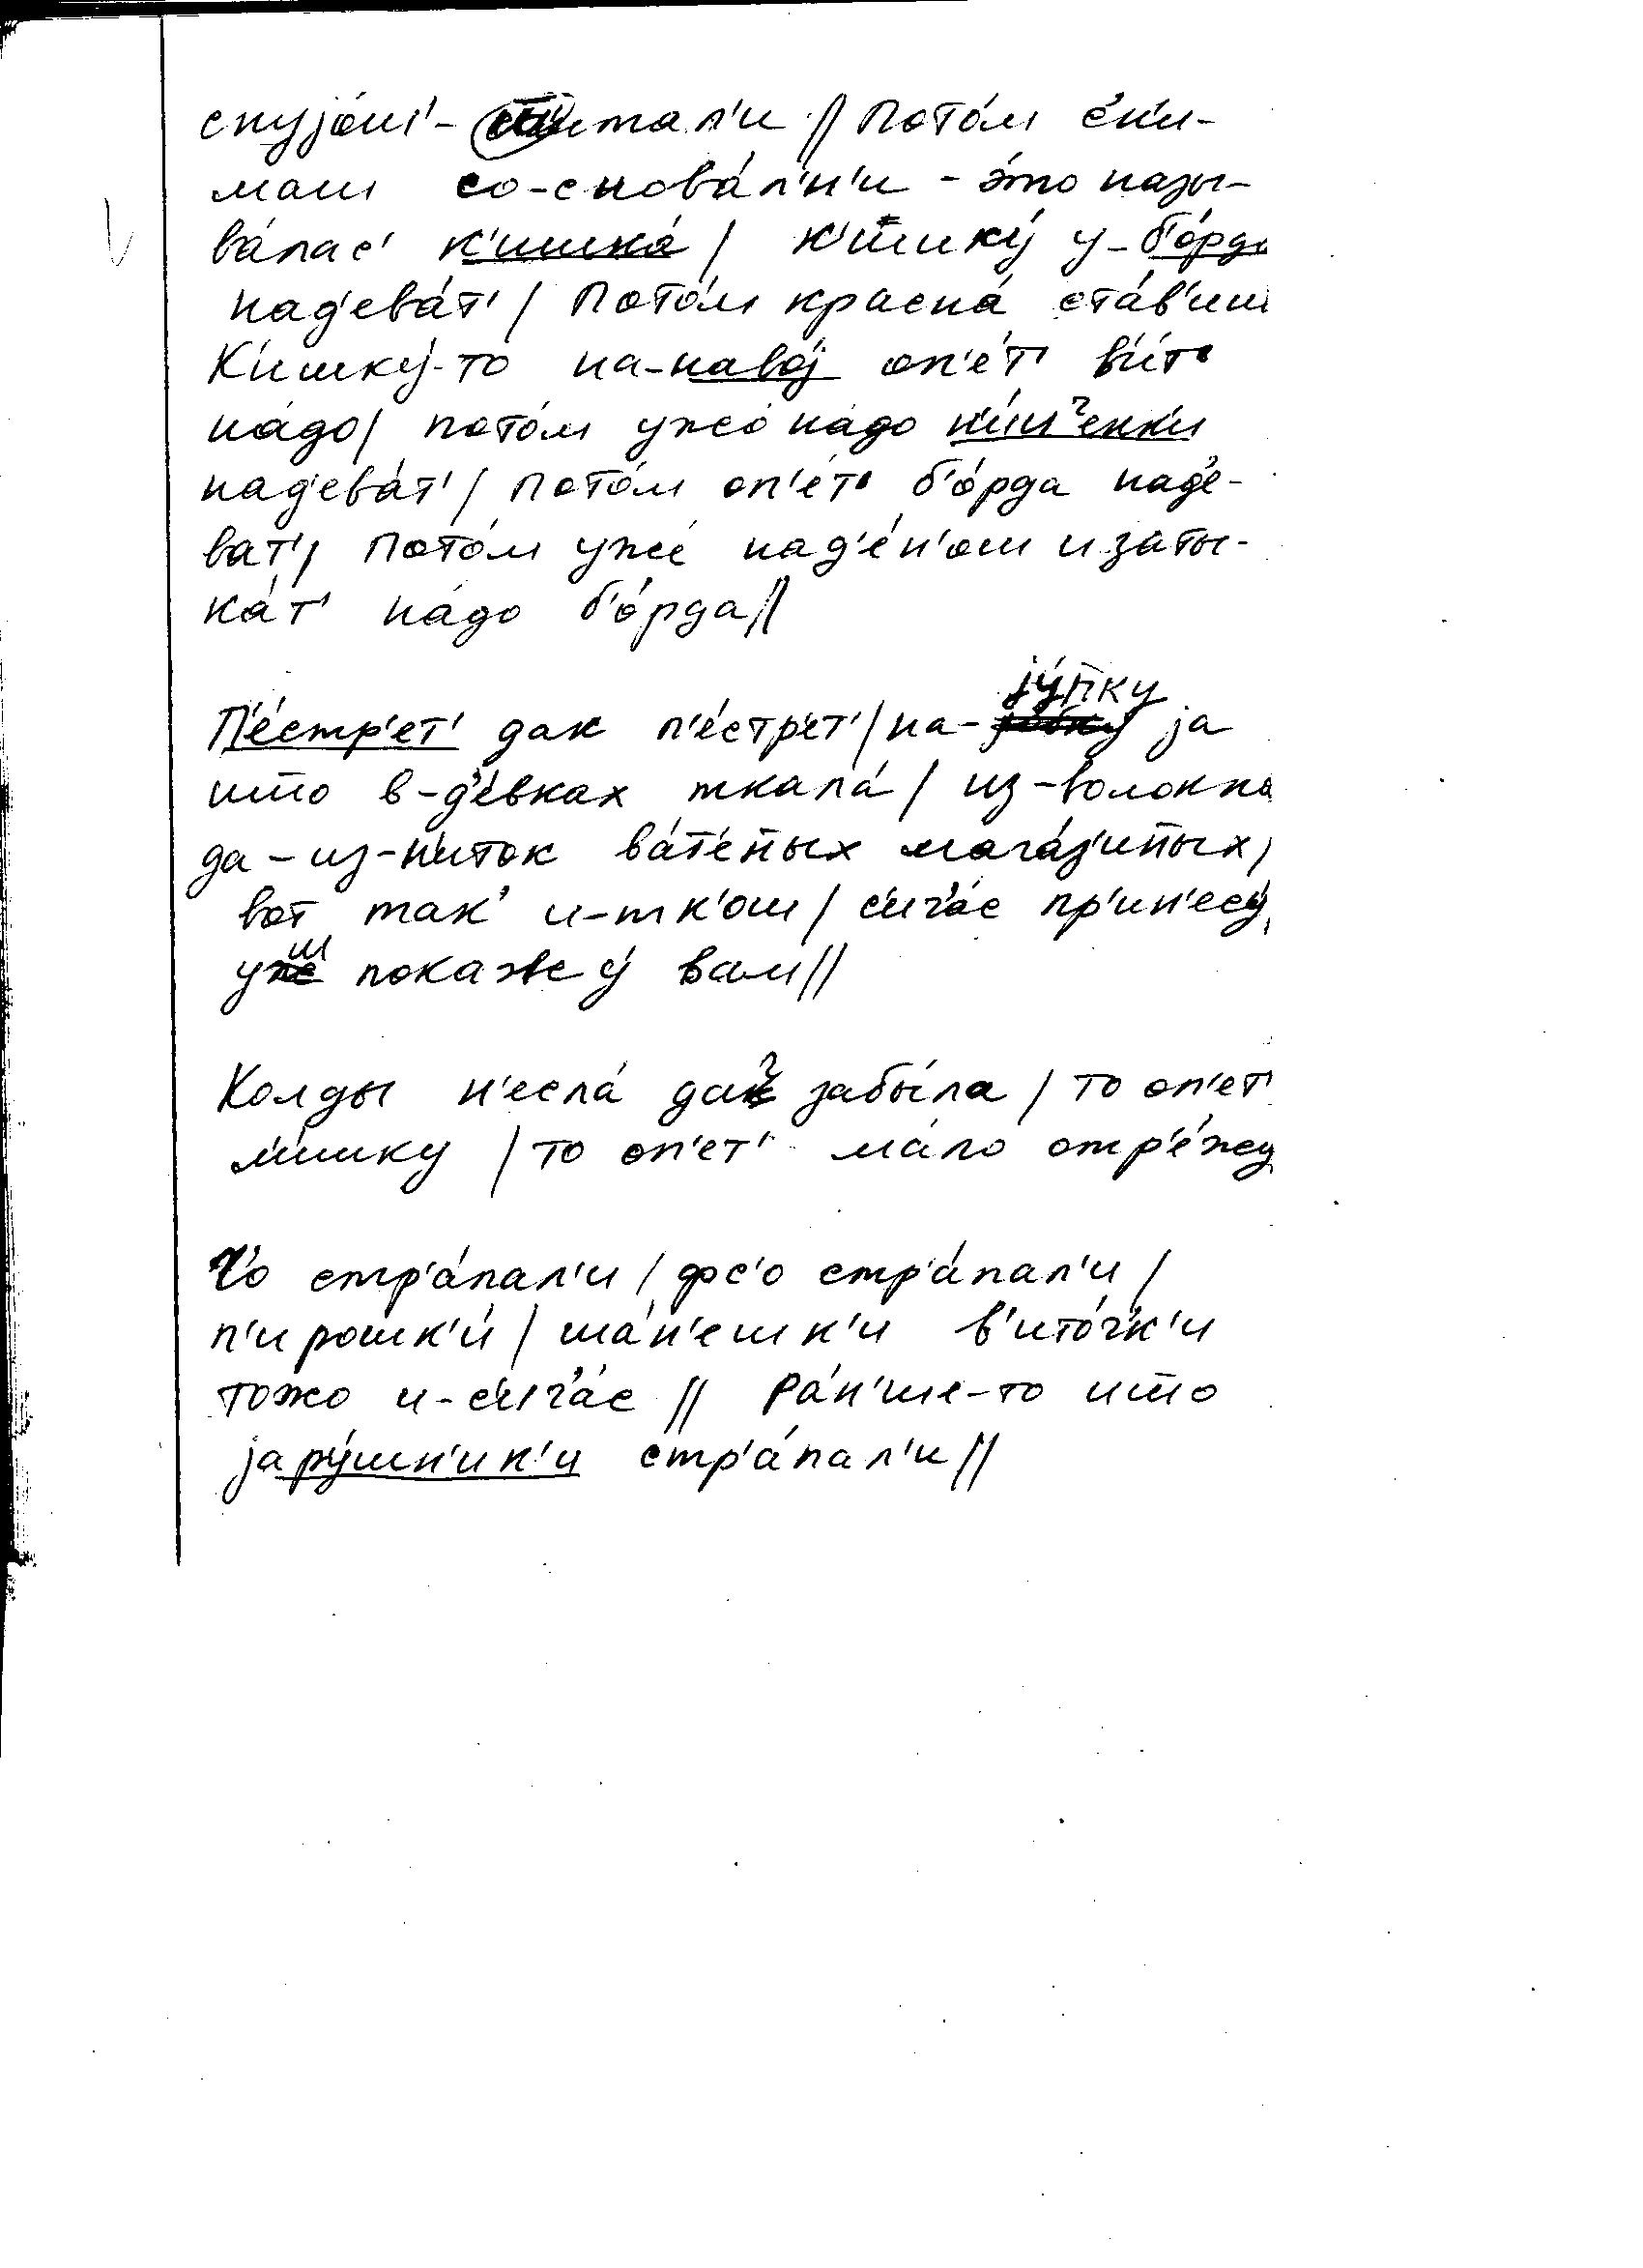 снуjо́ш'- штал'и // Пото́м с'н'и-
маш со-снова́л'н'и - э́то назы-
ва́лас' к'ишка́ / К'ишку́ у-б'о́рда
над'ева́т' / Пото́м красна́ ста́в'иш
К'ишку́-то на-наво́j оп'е́т' в'ит'
на́до / пото́м ужо́ на́до н'и́ч'енк'и
над'ева́т' / Пото́м оп'е́т' б'о́рда над'е-
ват' / Пото́м уже́ над'е́н'ош и заты-
ка́т' на́до б'о́рда //
П'е́стр'ет' дак п'е́стр'ет' / на-jу́пку jа
што в-д'е́вках ткала́ / из-волокна
да-из-н'и́ток ва́т'еных мага́з'иных /
вот так и-тк'ош / с'ич'а́с пр'ин'есу́
уш покажу́ вам //
Колды н'есла́ дак забы́ла / то оп'ет'
л'и́шку / то оп'ет' ма́ло отр'е́жу
Ч'о стр'а́пал'и / фс'о стр'а́пал'и /
п'ирошк'и́ / ша́н'ешк'и в'ито́ч'к'и
тожо и-с'ич'а́с // Ра́н'ше-то што
jару́шн'ик'и стр'а́пал'и //